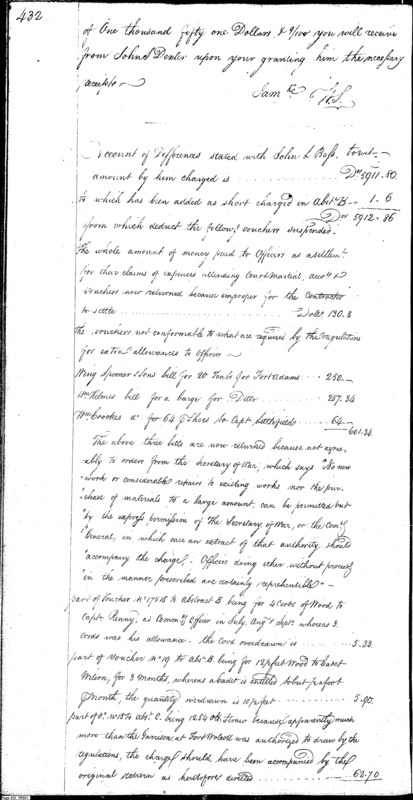 432
of One thousand fifty one Dollars, & 9/100 you will receive
from John S Dexter upon your granting him the necessary
receipts
Sam W.S.
Account of Differences stated with John L Boss. to wit
amount by him charged is Drs 5911.80
to which has been added as short charged in Abst. B 1.6
Drs 5912.86
from which deduct the followg. vouchers suspended.
The whole amount of money paid to Officers as a settlemt.
for their claims of expences attending Court Martial, accots. &
Vouchers now returned because improper for the Contractor
to settle Dolls 130.8
the vouchers not conformable to what are required by the regulations
for extra allowances to Officers
Wing Spooner & Sons bill for 20 Tents for Fort Adams 250.
Wm. Holmes bill for a barge for Ditto 287.34
Wm. Crookes do. for 64 pr Shoes to Capt. Littlefield 64
601.34
The above three bills are now returned because not agree-
ably to orders from the Secretary of War, which says "No new
"work or considerable repairs to existing works nor the pur-
"chase of materials to a large amount, can be permitted but
"by the express permission of the Secretary of War, or the Comg.
"General, in which case an extract of that authority should
"accompany the charge. Officers doing other without proceedg
"in the manner prescribed are certainly reprehensible"
part of Voucher No 17 & 18 to abstract B being for 4 Cords of Wood to
Capt. Henry, as Commg. Officer in July, Augt. & Sept. whereas 3
Cords was his allowance. the Cord overdrawn is 5.33
part of Voucher No 19 to Abst. B. being for 12 feet Wood to Cadet
Wilson, for 3 Months, whereas a Cadet is entitled to but a foot
Month, the quantity overdrawn is 5.00
part of Do. No 18 to Abst. C. being 1254 lb. Straw because apparently much
more than the Garrison at Fort Wolcott was authorized to draw by the
regulations, the charge should have been accompanied by the
original return as heretofore directed 62.70